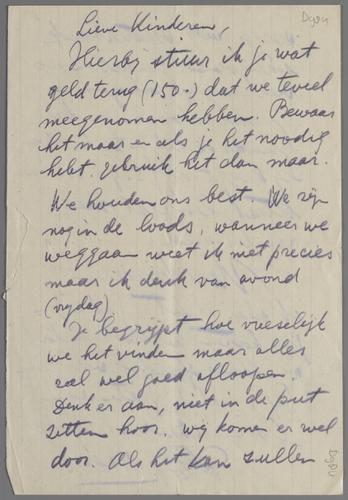 Lieve Kinderen,
Hierbij stuur ik je wat
geld terug (150.-) dat we teveel
meegenomen hebben. Bewaar
het maar en als je het noodig
hebt gebruik het dan maar.
We houden ons best. We zijn
nog in de loods, wanneer we
weggaan weet ik niet precies
maar ik denk van avond
(vrijdag)
Je begrijpt hoe vreselijk
we het vinden maar alles
zal wel goed afloopen.
Denk er aan, niet in de put
zitten hoor. wij komen er wel
door. Als het kan zullen